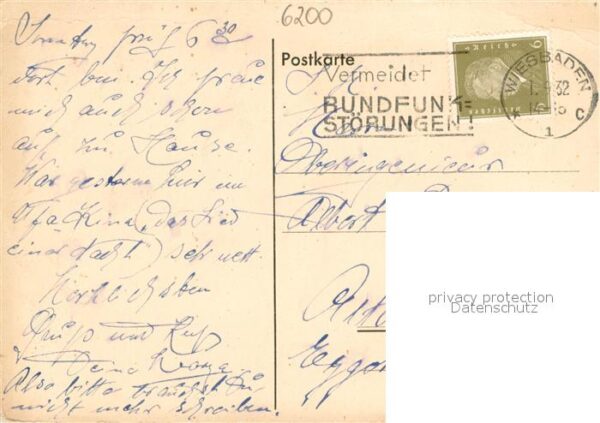 6200
Sonntag früh 6 30
dort bin. Ich freue
mich auch schon
auf zu Hause.
War gestern hier im
Kino, das Lied
einer Nacht) sehr nett.
Herzlichsten
Gruß und Kuß
Deine
Also bitte brauchst Du
nicht mehr schreiben.
Postkarte
Vermeidet
RUNDFUNK=
STÖRUNGEN!
Deutsches Reich
6
WIESBADEN
32
1 c
Herrn
Oberingenieur
Albert
privacy protection
Datenschutz